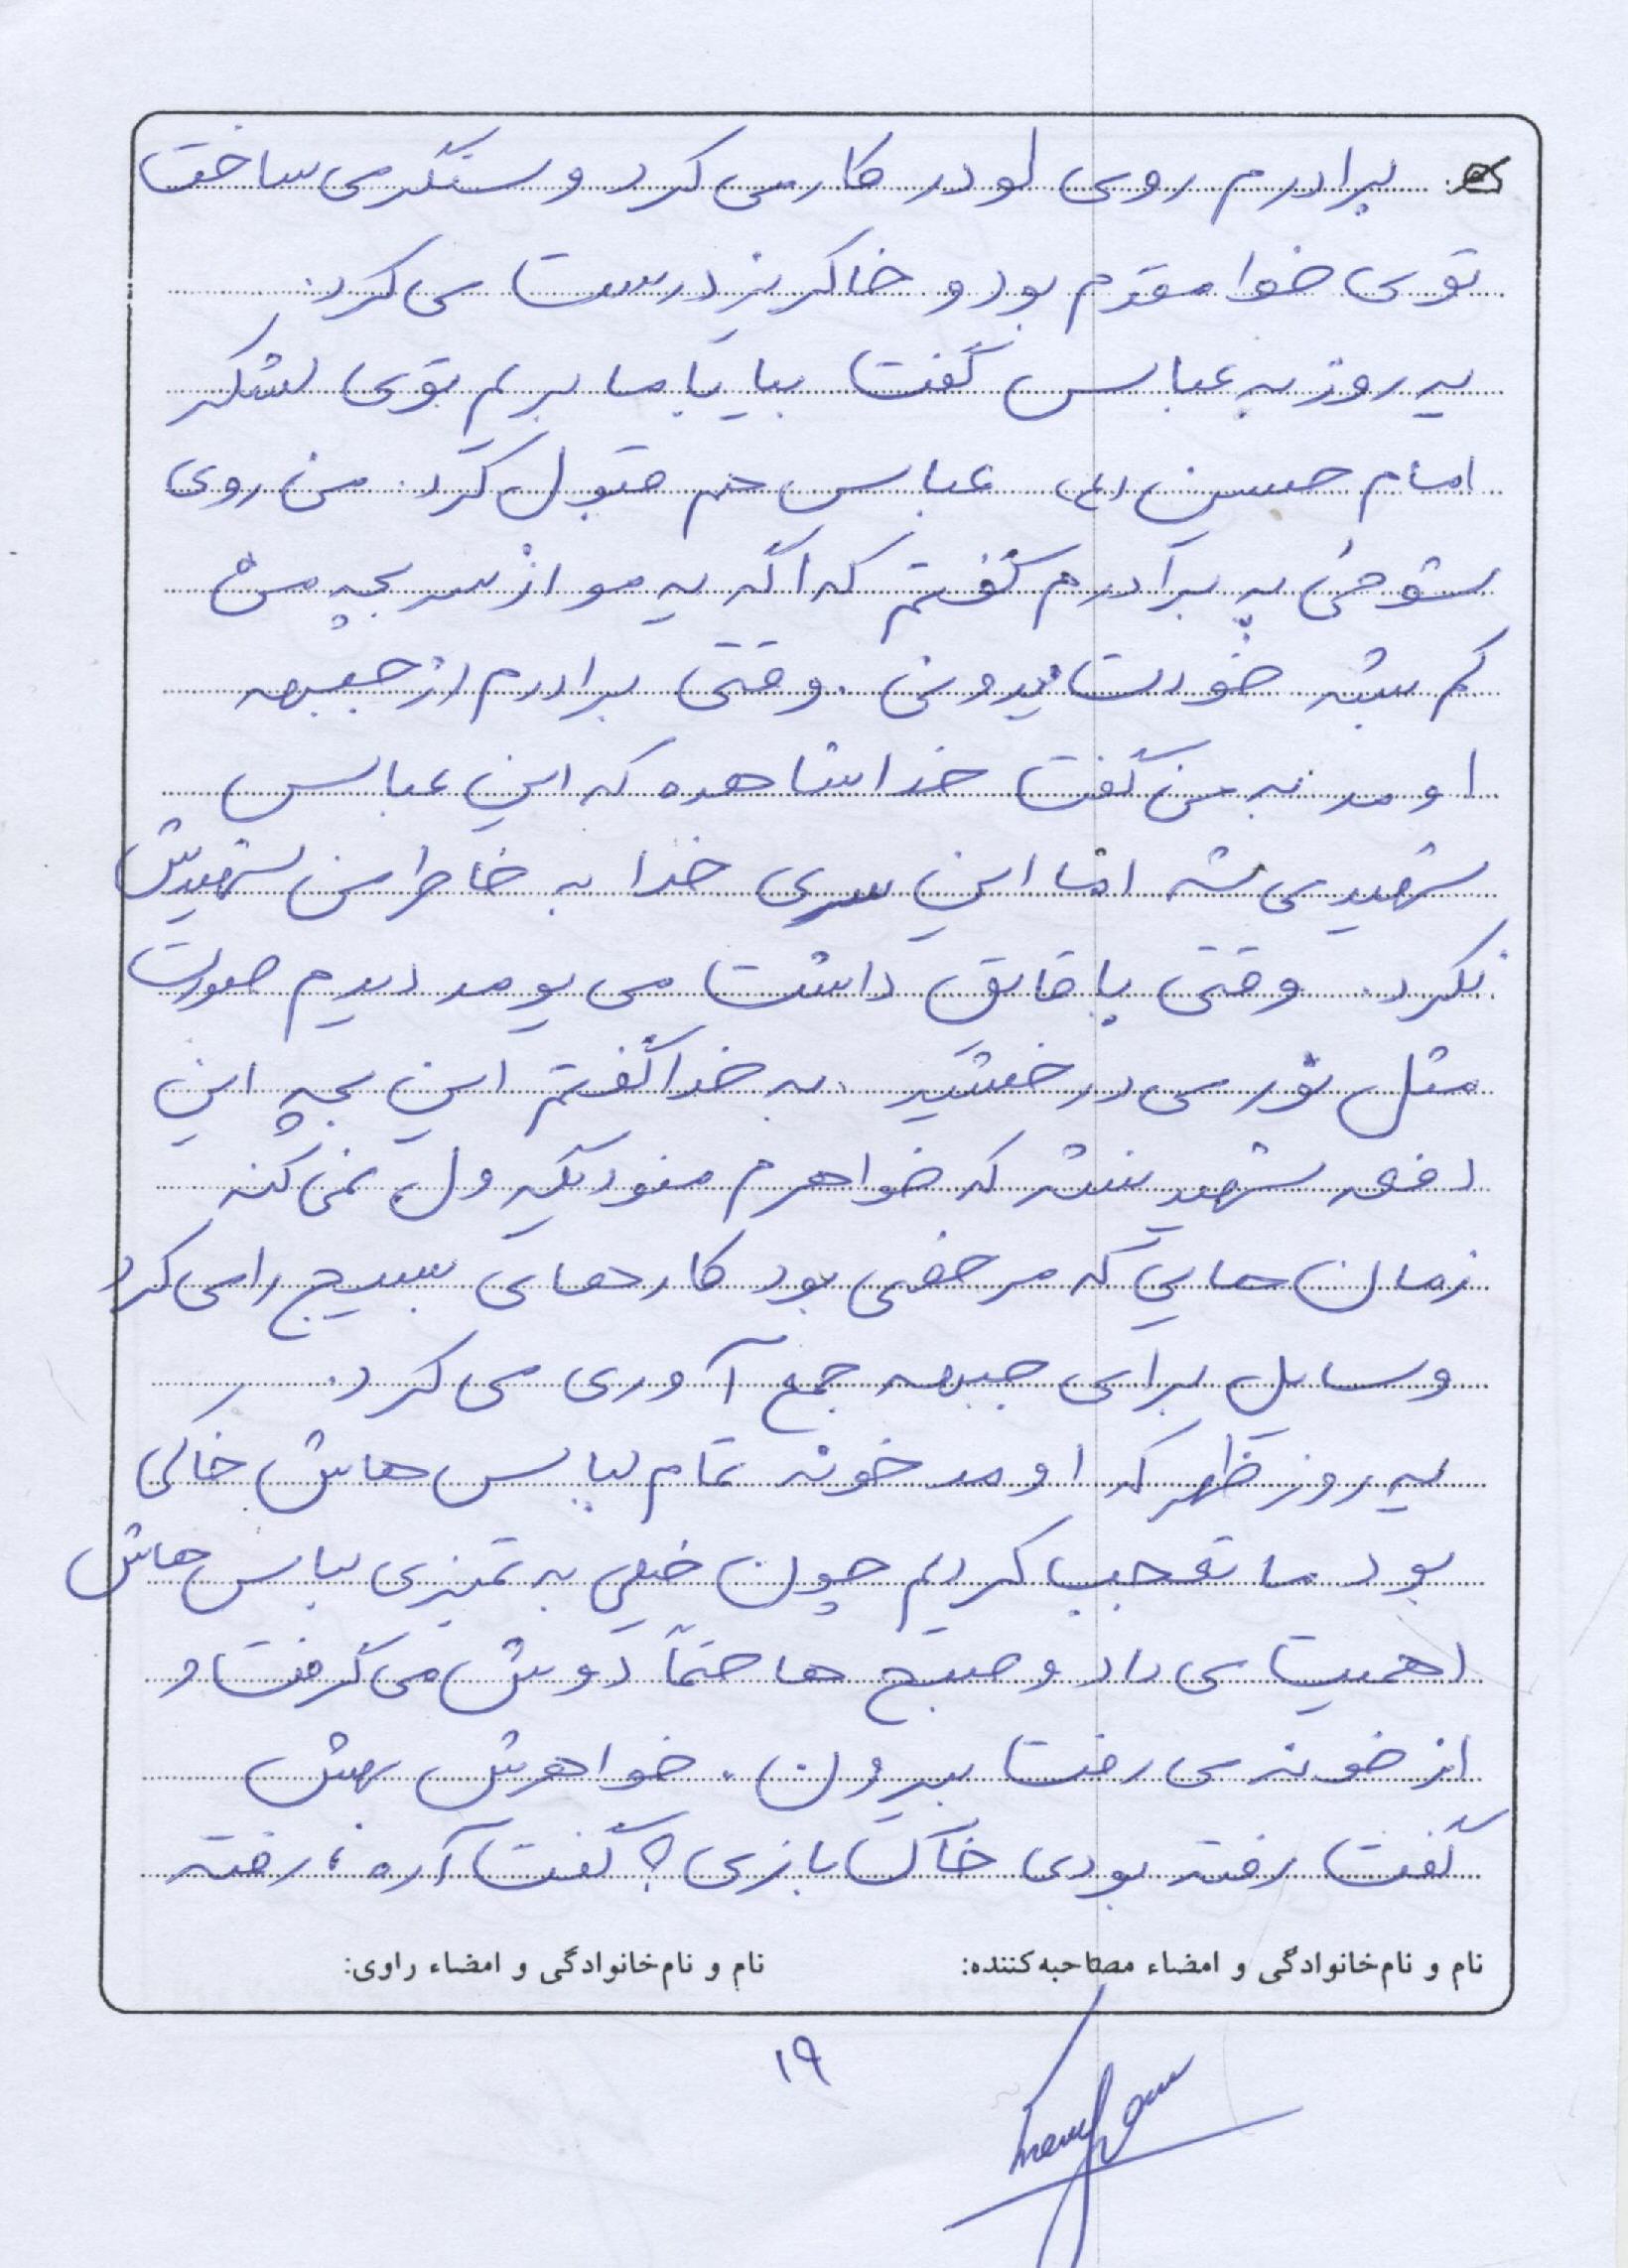 برادرم روی لودر کار می کرد و سنگر می ساخت
توی خط مقدم بود و خاکریز درست می کرد.
یه روز به عباس گفت بیا با ما بریم توی لشکر
امام حسین (ع) عباس هم قبول کرد. من روی
شوخی به برادرم گفتم که اگه یه مو از سر بچه من
کم بشه خودت میدونی. وقتی برادرم از جبهه
اومد به من گفت خدا شاهده که این عباس
شهید می شه اما این سری خدا به خاطر من شهیدش
نکرد. وقتی با قایق داشت می یومد دیدم صورت
مثل نور می درخشید. به خدا گفتم این بچه این
دفعه شهید نشه که خواهرم منو دیگه ول نمی کنه
زمان هایی که مرخصی بود کارهای بسیج را می کرد
وسایل برای جبهه جمع آوری می کرد.
یه روز ظهر که اومد خونه تمام لباس هاش خاکی
بود ما تعجب کردیم چون خیلی به تمیزی لباس هاش
اهمیت می داد و صبح ها حتماً دوش می گرفت و
از خونه می رفت بیرون. خواهرش بهش
گفت رفته بودی خاک بازی؟ گفت آره، رفته
نام و نام خانوادگی و امضاء مصاحبه کننده: نام و نام خانوادگی و امضاء راوی:
۱۹